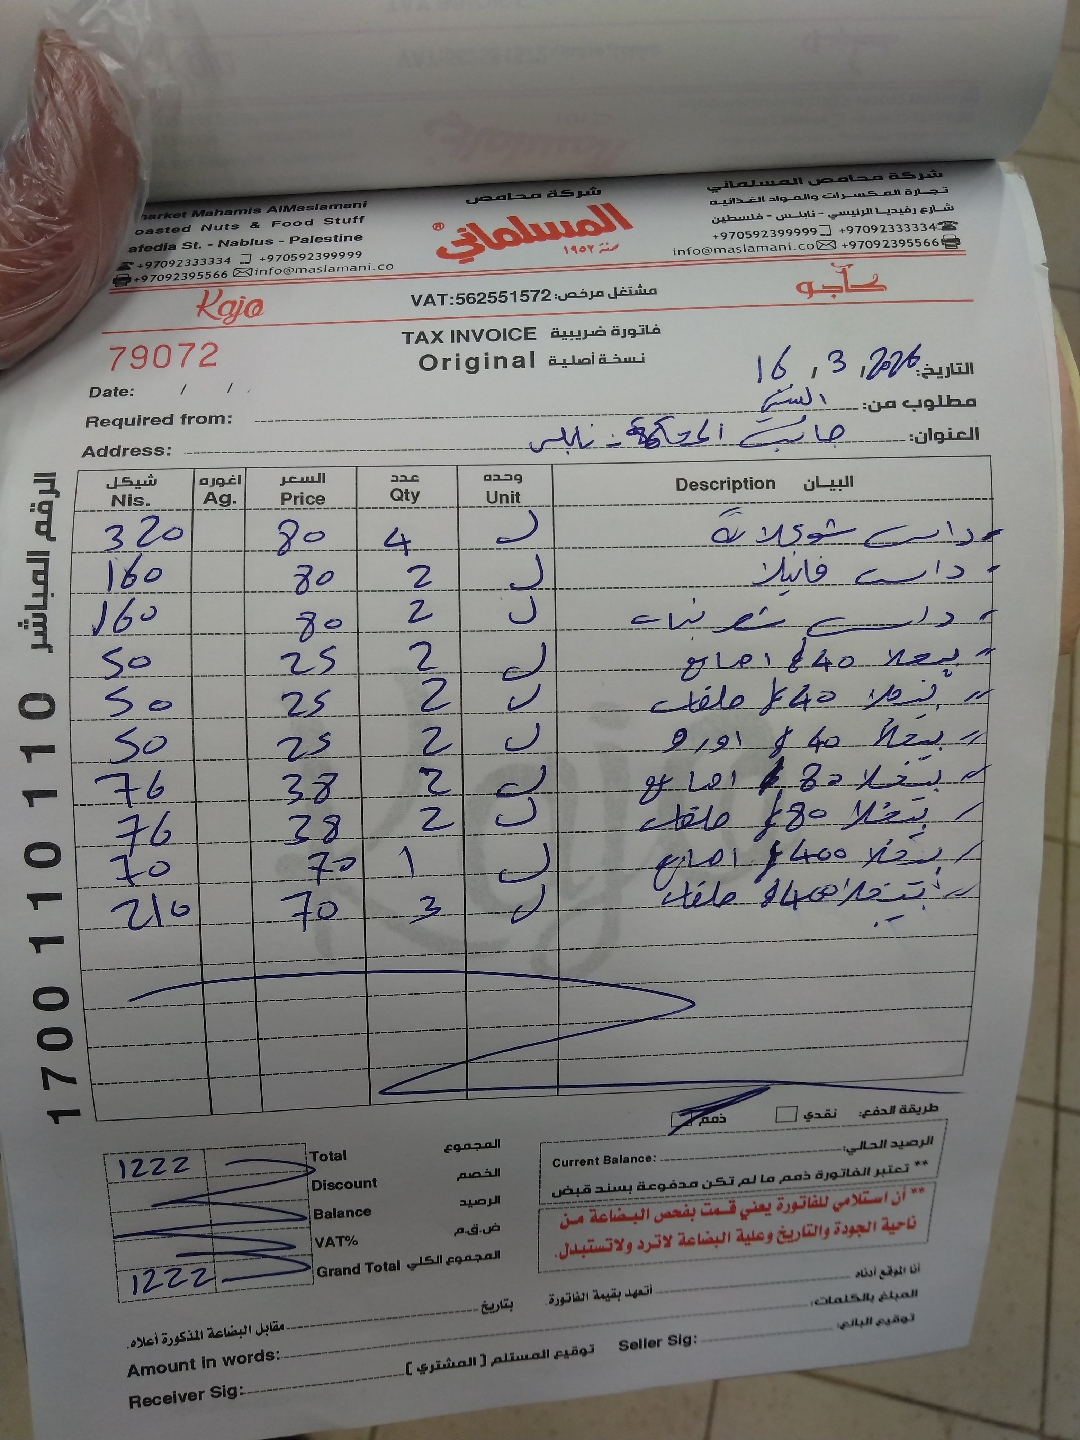 شركة محامص المسلماني
تجارة المكسرات والمواد الغذائيه
شارع رفيديا الرئيسي - نابلس - فلسطين
+970592399999 +97092333334
info@maslamani.co +97092395566
شركة محامص
المسلماني®
سنة ١٩٥٢
market Mahamis AlMaslamani
oasted Nuts & Food Stuff
afedia St. - Nablus - Palestine
+97092333334 +970592399999
+97092395566 info@maslamani.co
Kaja
VAT:562551572 :مشتغل مرخص
كاجو
79072
TAX INVOICE فاتورة ضريبية
Original نسخة أصلية
التاريخ: 16 , 3 , 2026
Date: / /
مطلوب من:
Required from:
العنوان: جانب المحكمة - نابلس
Address:
الرقم المباشر 1700 110 110
شيكل Nis. اغوره Ag. السعر Price عدد Qty وحده Unit Description البيان
320 80 4 ل
160 80 2 ل فانيلا
160 80 2 ل
50 25 2 ل 40 اصابع
50 25 2 ل 40 حلقات
50 25 2 ل 40
76 38 2 ل 80 اصابع
76 38 2 ل 80 حلقات
70 70 1 ل 400 اصابع
210 70 3 ل 400 حلقات
طريقة الدفع: نقدي ذمم
1222 Total المجموع
Discount الخصم
Balance الرصيد
VAT% ض.ق.م
1222 Grand Total المجموع الكلي
Current Balance: الرصيد الحالي:
** تعتبر الفاتورة ذمم ما لم تكن مدفوعة بسند قبض
** أن استلامي للفاتورة يعني قمت بفحص البضاعة من
ناحية الجودة والتاريخ وعلية البضاعة لاترد ولاتستبدل.
أنا الموقع أدناه أتعهد بقيمة الفاتورة. بتاريخ مقابل البضاعة المذكورة أعلاه.
Amount in words: المبلغ بالكلمات:
Receiver Sig: توقيع المستلم [ المشتري ] Seller Sig: توقيع البائع: